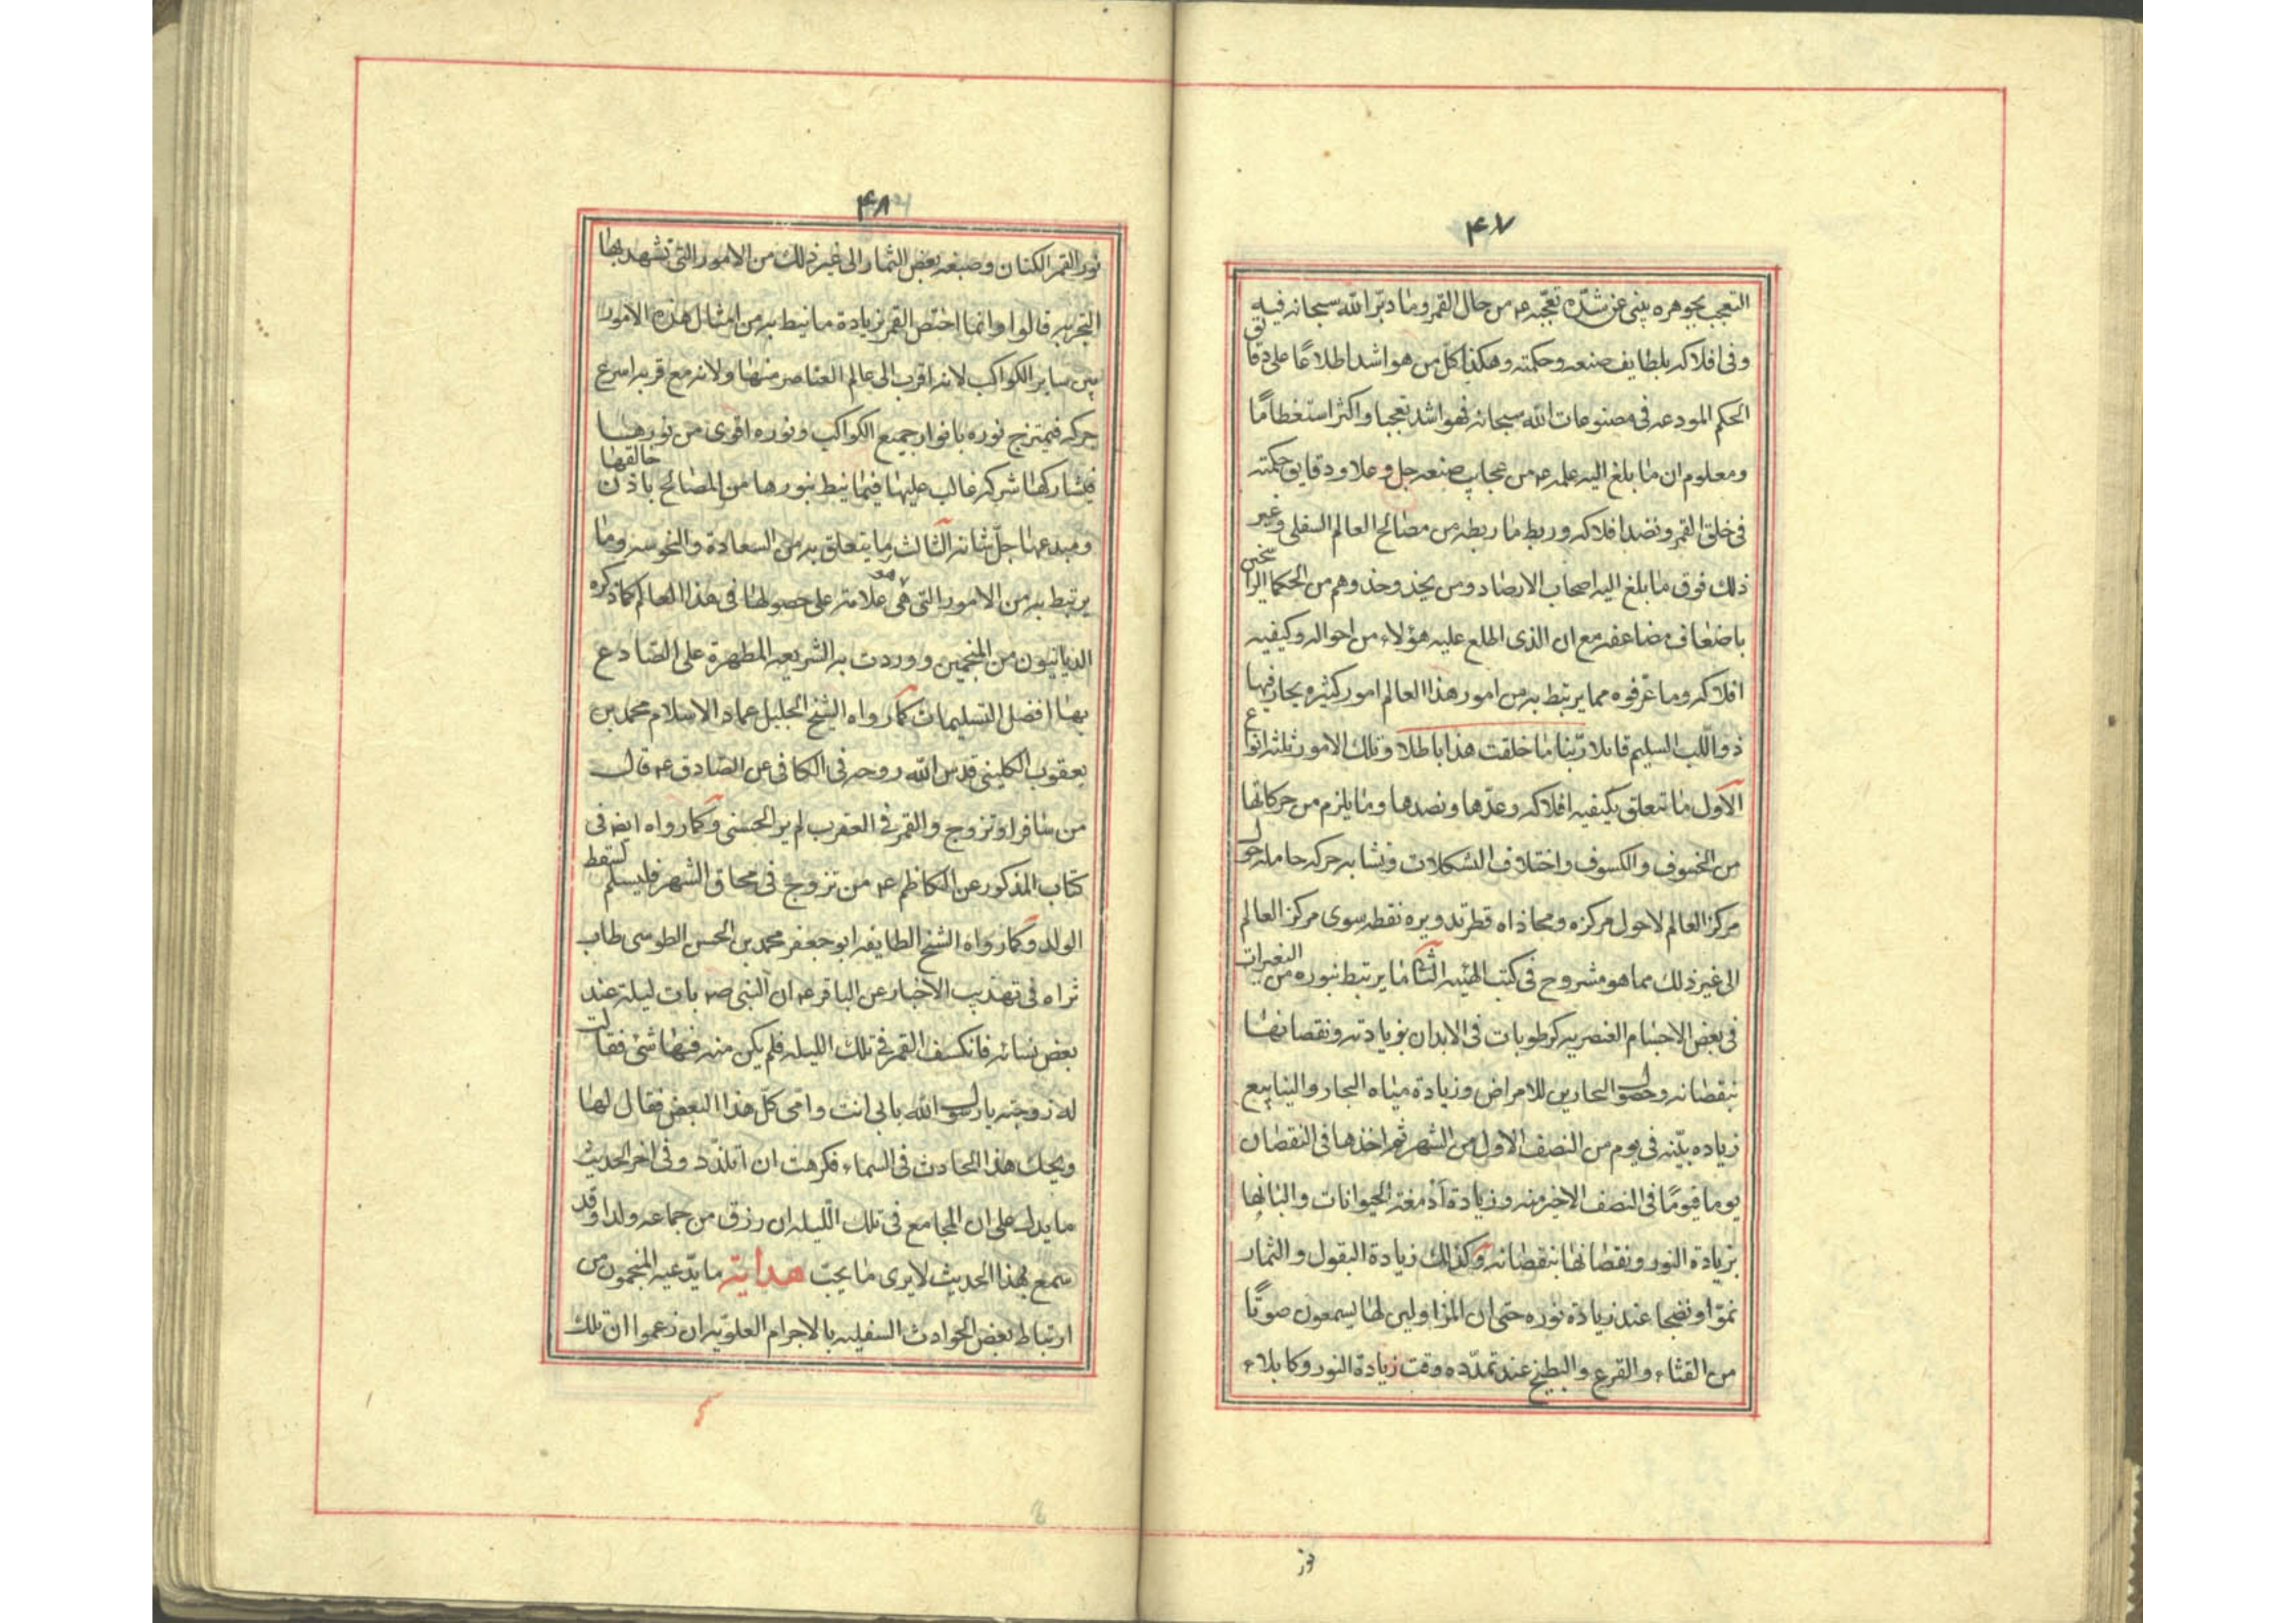 ۴۷
التعجب بجوهره ينبئ عن شدّة تعجّبه ع من حال القمر وما دبّر الله سبحانه فيه
وفى افلاكه بلطايف صنعه وحكمته وهكذا كلّ من هو اشد اطلاعًا على دقائق
الحكم المودعه فى مصنوعات الله سبحانه فهو اشد تعجبا واكثر استعظامًا
ومعلوم ان ما بلغ اليه علمه ع من عجايب صنعه جل وعلا ودقايق حكمته
فى خلق القمر ونضد افلاكه وربط ما ربطه من مصالح العالم السفلى وغير
ذلك فوق ما بلغ اليه اصحاب الارصاد ومن يحذ وحذوهم من الحكما الراسخين
باضعاف مضاعفه مع ان الذى اطلع عليه هؤلاء من احواله وكيفيه
افلاكه وما عرفوه مما يرتبط به من امور هذا العالم امور كثيره يحار فيها
ذو اللّب السليم قائلا ربّنا ما خلقت هذا باطلا وتلك الامور ثلثه انواع
الاول ما تتعلق بكيفيه افلاكه وعدّها ونضدها وما يلزم من حركاتها
من الخسوف والكسوف واختلاف التشكلات وتشابه حركه حامله حول
مركز العالم لا حول مركزه ومحاذاه قطر تدويره نقطه سوى مركز العالم
الى غير ذلك مما هو مشروح فى كتب الهيئه الثانى ما يرتبط بنوره من التغيرات
فى بعض الاجسام العنصريه كرطوبات فى الابدان بزيادته ونقصانها
بنقصانه وحصول البحارين للامراض وزيادة مياه البحار والينابيع
زياده بيّنه فى يوم من النصف الاول من الشهر ثم اخذها فى النقصان
يوما فيومًا فى النصف الاخير منه وزيادة أدمغة الحيوانات والبانها
بزيادة النور ونقصانها بنقصانه وكذلك زيادة البقول والثمار
نموّا ونضجا عند زيادة نوره حتى ان المزاولين لها يسمعون صوتًا
من القثاء والقرع والبطيخ عند تمدّده وقت زيادة النور وكابلاء
نور
۴۸
نور القمر الكتان وصبغه بعض الثمار الى غير ذلك من الامور التى تشهد بها
التجربه قالوا وانما اختص القمر بزيادة ما نيط به من امثال هذه الامور
بين ساير الكواكب لانه اقرب الى عالم العناصر منها ولانه مع قربه اسرع
حركه فيمتزج نوره بانوار جميع الكواكب ونوره اقوى من نورها
فيشاركها شركه غالب عليها فيما نيط بنورها من المصالح باذن خالقها
ومبدعها جلّ شانه الثالث ما يتعلق به من السعادة والنحوسه وما
يرتبط به من الامور التى هى علامة على حصولها فى هذا العالم كما ذكره
الديانيون من المنجمين ووردت به الشريعه المطهرة على الصادع
بها افضل التسليمات كما رواه الشيخ الجليل عماد الاسلام محمد بن
يعقوب الكلينى قدس الله روحه فى الكافى عن الصادق ع قال
من سافر او تزوج والقمر فى العقرب لم ير الحسنى وكما رواه ايضه فى
كتاب المذكور عن الكاظم ع من تزوج فى محاق الشهر فليسلم لسقط
الولد وكما رواه الشيخ الطايفه ابو جعفر محمد بن الحسن الطوسى طاب
ثراه فى تهذيب الاخبار عن الباقر ع ان النبى ص بات ليلة عند
بعض نسائه فانكسف القمر فى تلك الليله فلم يكن منه فيها شئ فقالت
له زوجته يا رسول الله بابى انت وامى كلّ هذا البغض فقال لها
ويحك هذا الحادث فى السماء فكرهت ان اتلذّد وفى اخر الحديث
ما يدل على ان المجامع فى تلك اللّيله ان رزق من جماعه ولدا وقد
سمع بهذا الحديث لا يرى ما يحبّ هداية ما يدّعيه المنجمون من
ارتباط بعض الحوادث السفليه بالاجرام العلويّه ان زعموا ان تلك